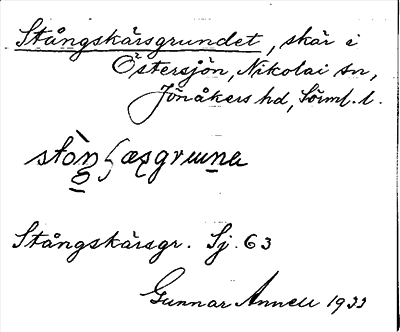 Stångskärsgrundet, skär i
Östersjön, Nikolai sn,
Jönåkers hd, Sörml. l.
Stångskärsgr. Sj. 63
Gunnar Anneli 1933